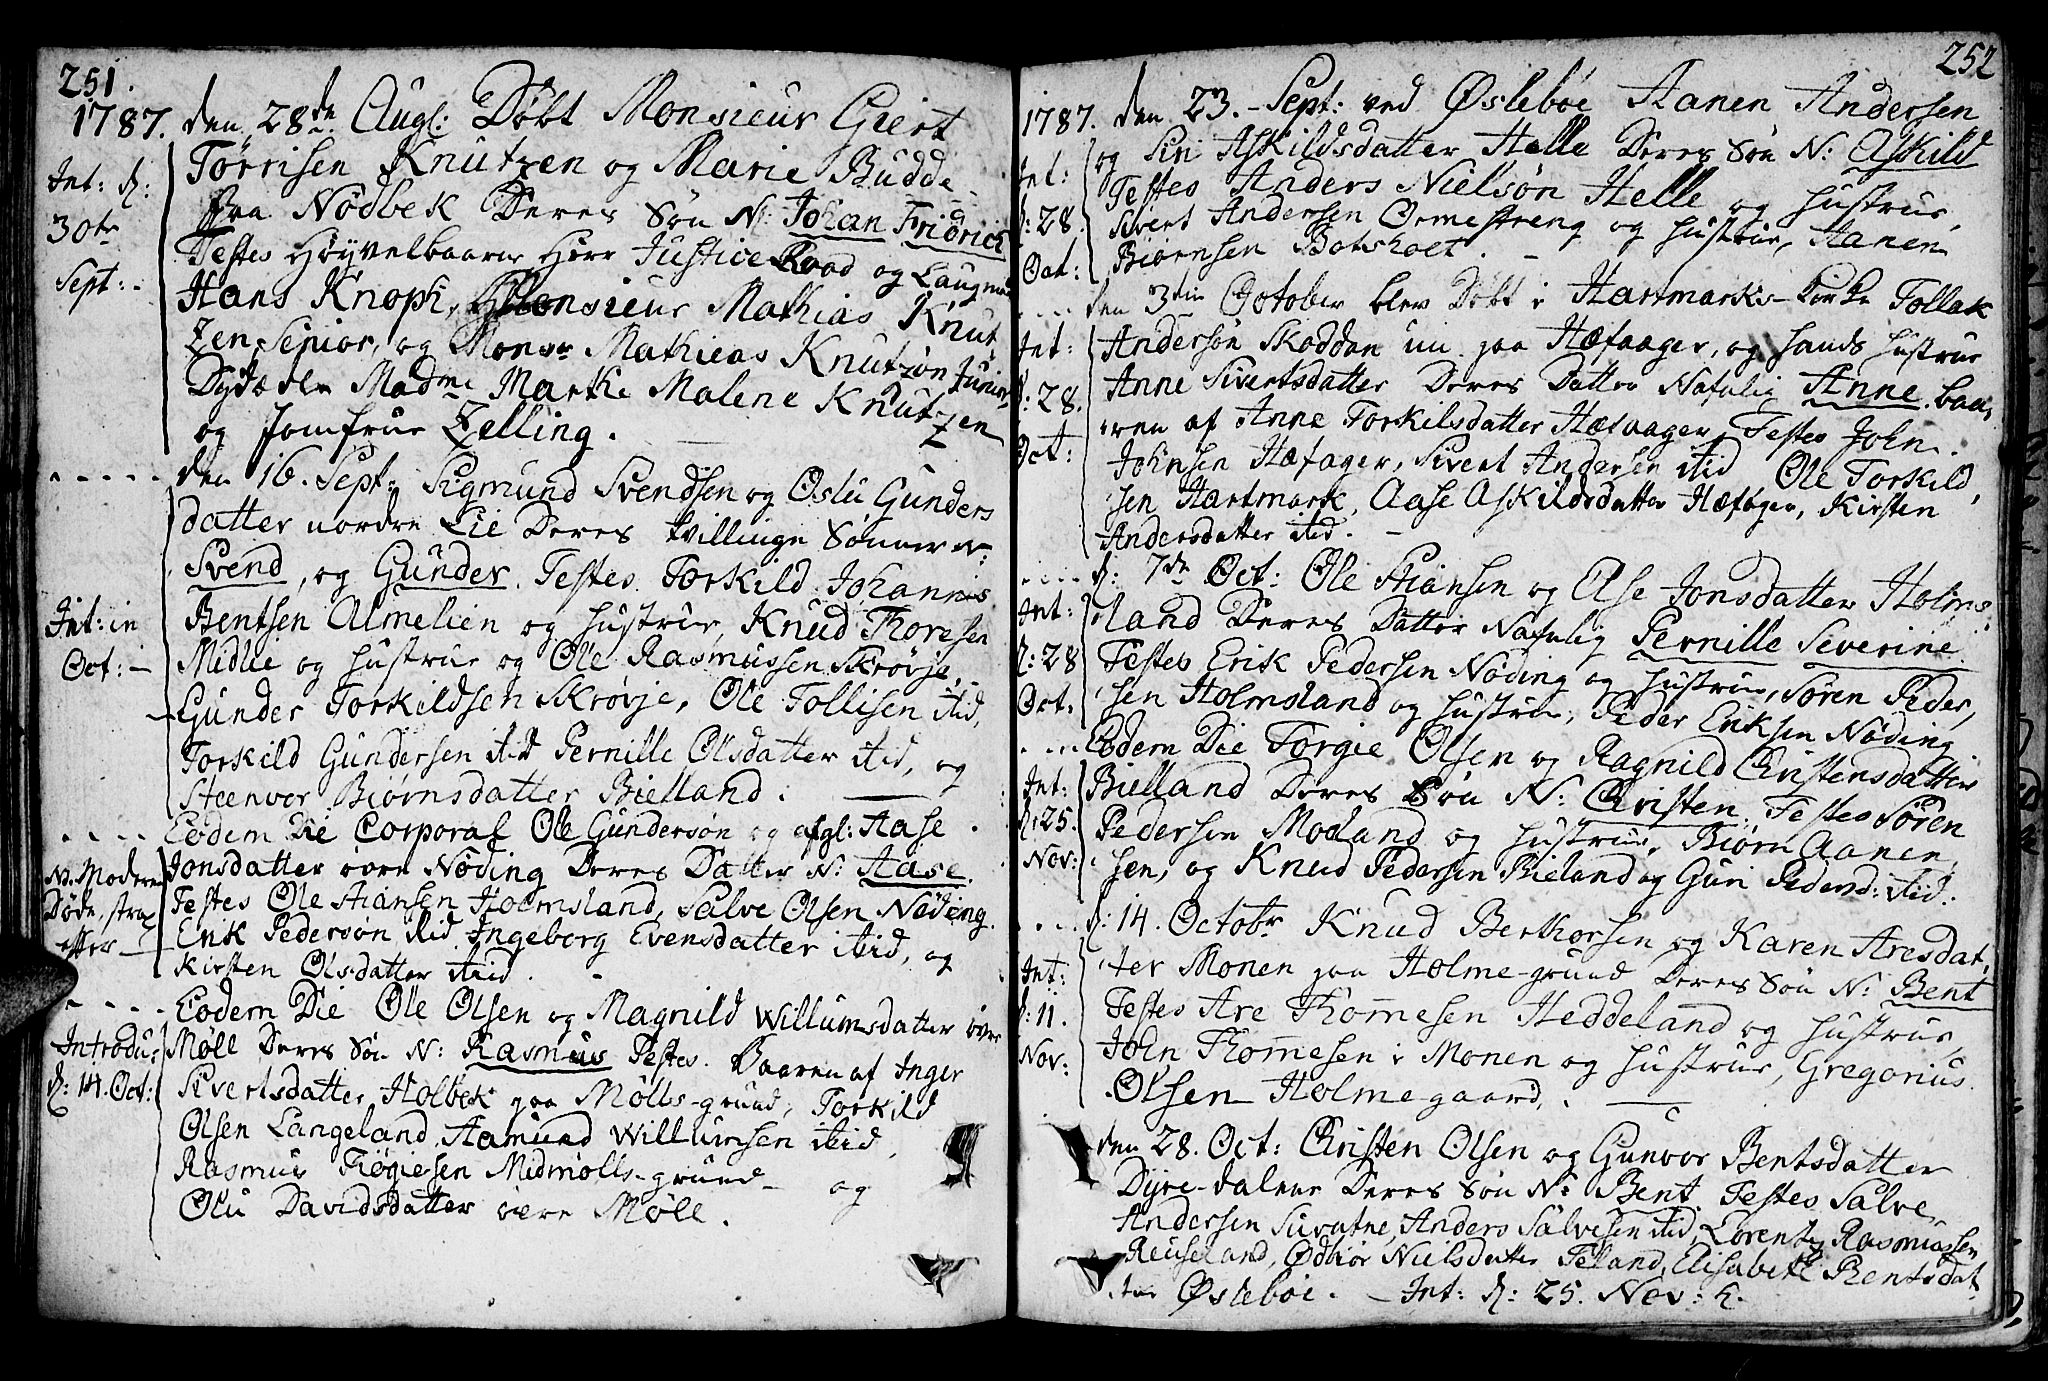 251.
1787. den 28de Aug: Döbt Monsieur Giert
Törrisen Knutzen og Marie Budde
paa Nödbek Deres Sön N: Johan Fridrich
Testes Höyvelbaarne Herr Justice Raad og Laugm
Hans Knoph, Monsieur Mathias Knut
zen, Senior, og Monsr Mathias Knutzon Junior,
Madme Marthe Malene Knutzen
og Jomfrue Zelling.
Int: d:
30te
Sept:
den 16. Sept: Sigmund Svendsen og Oslu Gunders
datter nordre Lie Deres tvillinge Sönner N:
Svend, og Gunder. Testes Torkild Johannis
Bentsen Almelien og Hustrue, Knud Thoresen
Midlie og Hustrue og Ole Rasmussen Skrövje,
Gunder Torkildsen Skrövje, Ole Tollisen itid,
Torkild Gundersen itid Pernille Olsdatter itid, og
Steenvor Biörnsdatter Bielland.
Int: in
Oct:
Eodem Die Corporal Ole Gundersön og afgl: Aase
Jonsdatter övre Nöding Deres Datter N: Aase.
Testes Ole Stiansen Holmsland, Salve Olsen Nöding
Erik Pedersön itid Ingeborg Evensdatter itid, og
Kirsten Olsdatter itid.
NB. Moderen
Döde, strax
efter
Eodem Die Ole Olsen og Magnild Willumsdatter övre
Möll Deres Sön N: Rasmus Testes. Baaren af Inger
Sivertsdatter Holbek paa Mölls-grund, Torkild
Olsen Langeland, Aamund Willumsen itid
Rasmus Tiögiesen Midmölls-grund og
Olu Davidsdatter övre Möll.
Introdu:
d: 14. Oct:
252
1787. den 23. Sept: ved Öslebö Aanen Andersen
og Siri Askildsdatter Helle Deres Sön N: Askild
Testes Anders Nielsön Helle og Hustrue,
Sivert Andersen Ormestreng og Hustrue, Aanen
Biörnsen Botsholt.
Int:
d: 28.
Oct:
den 3die October blev Döbt i Hartmarks-Kirke Tollak
Andersön Skoddan nu paa Hæfaager, og hands Hustrue
Anne Sivertsdatter Deres Datter Nafnlig Anne baa,
ren af Anne Torkilsdatter Hæfaager, Testes John
Johnsen Hæfager, Sivert Andersen itid Ole Torkild,
sen Hartmark, Aase Askildsdatter Hæfager, Kirsten
Andersdatter itid.
Int:
d: 28.
Oct:
d: 7de Oct: Ole Stiansen og Else Jonsdatter Holms
land Deres Datter Nafnlig Pernille Severine
Testes Erik Pedersen Nöding og Hustrue, Sören Peder,
sen Holmsland og Hustrue, Peder Eriksen Nöding
Int:
d: 28
Oct:
Eodem Die Torgie Olsen og Ragnild Christensdatter
Bielland Deres Sön N: Christen. Testes Sören
Pedersen Moland og Hustrue, Biörn Aanen,
sen, og Knud Pedersen Bieland og Guri Pedersd: itid.
Int:
d: 25.
Nov:
d: 14. Octobr Knud Berthorsen og Karen Aresdat,
ter Monen paa Holme-grund Deres Sön N: Bent
Testes Are Thomesen Heddeland og Hustrue,
John Thomesen i Monen og Hustrue, Gregorius
Olsen Holmegaard.
Int:
d: 11.
Nov:
den 28. Oct: Christen Olsen og Gunvor Bentsdatter
Dyre-dalene Deres Sön N: Bent. Testes Salve
Andersen Suvatne, Anders Salvesen itid, Lorentz Rasmussen
Reuseland, Ödbiör Nielsdatter Feland, Elisabeth Bentsdat
ter Öslebö. Int: d: 25. Nov: